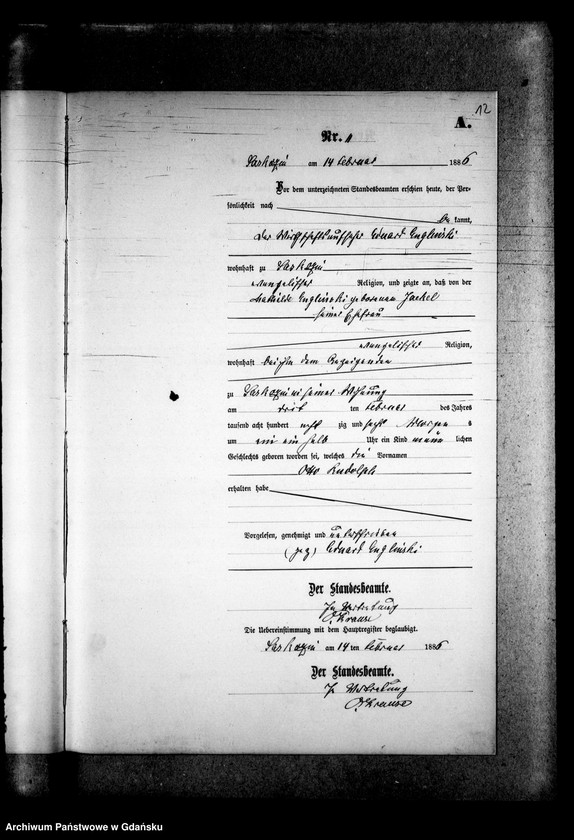 12
A.
Nr. 1
am 14 Februar 1886
Vor dem unterzeichneten Standesbeamten erschien heute, der Per-
sönlichkeit nach
be kannt,
der Wirthschaftsaufseher Eduard Englinski
wohnhaft zu
evangelischer Religion, und zeigte an, daß von der
Mathilde Englinski geborenen Jaekel
seiner Ehefrau
evangelischer Religion,
wohnhaft bei ihm dem Anzeigenden
zu in seiner Wohnung
am ten Februar des Jahres
tausend acht hundert acht zig und sechs Morgens
um ein ein halb Uhr ein Kind männ lichen
Geschlechts geboren worden sei, welches die Vornamen
Otto Rudolph
erhalten habe
Vorgelesen, genehmigt und unterschrieben
(gez) Eduard Englinski
Der Standesbeamte.
In Vertretung
Krause
Die Uebereinstimmung mit dem Hauptregister beglaubigt.
am 14 ten Februar 1886
Der Standesbeamte.
In Vertretung
Krause
Archiwum Państwowe w Gdańsku